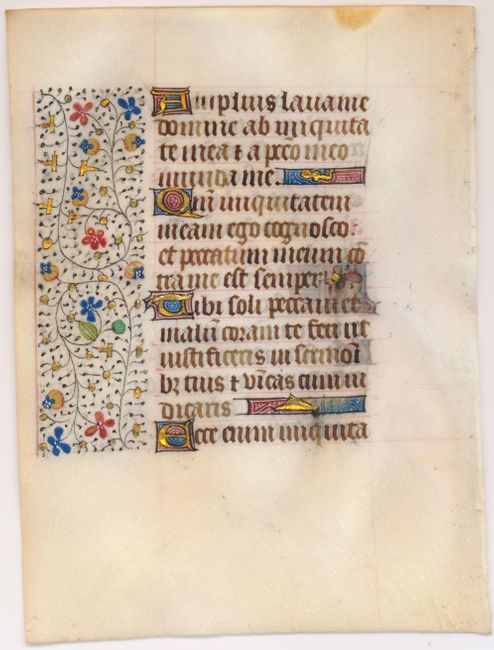 Amplius lava me
domine ab iniquita
te mea ⁊ a pcc̄o meo
munda me
Qm̄ iniquitatem
meam ego cognosco:
et peccatum meum cō
tra me est semper
Tibi soli peccavi et
malū coram te feci ut
iustificeris in sermoi
bꝫ tuis ⁊ vīcas cum iu
dicaris
Ecce enim iniquita